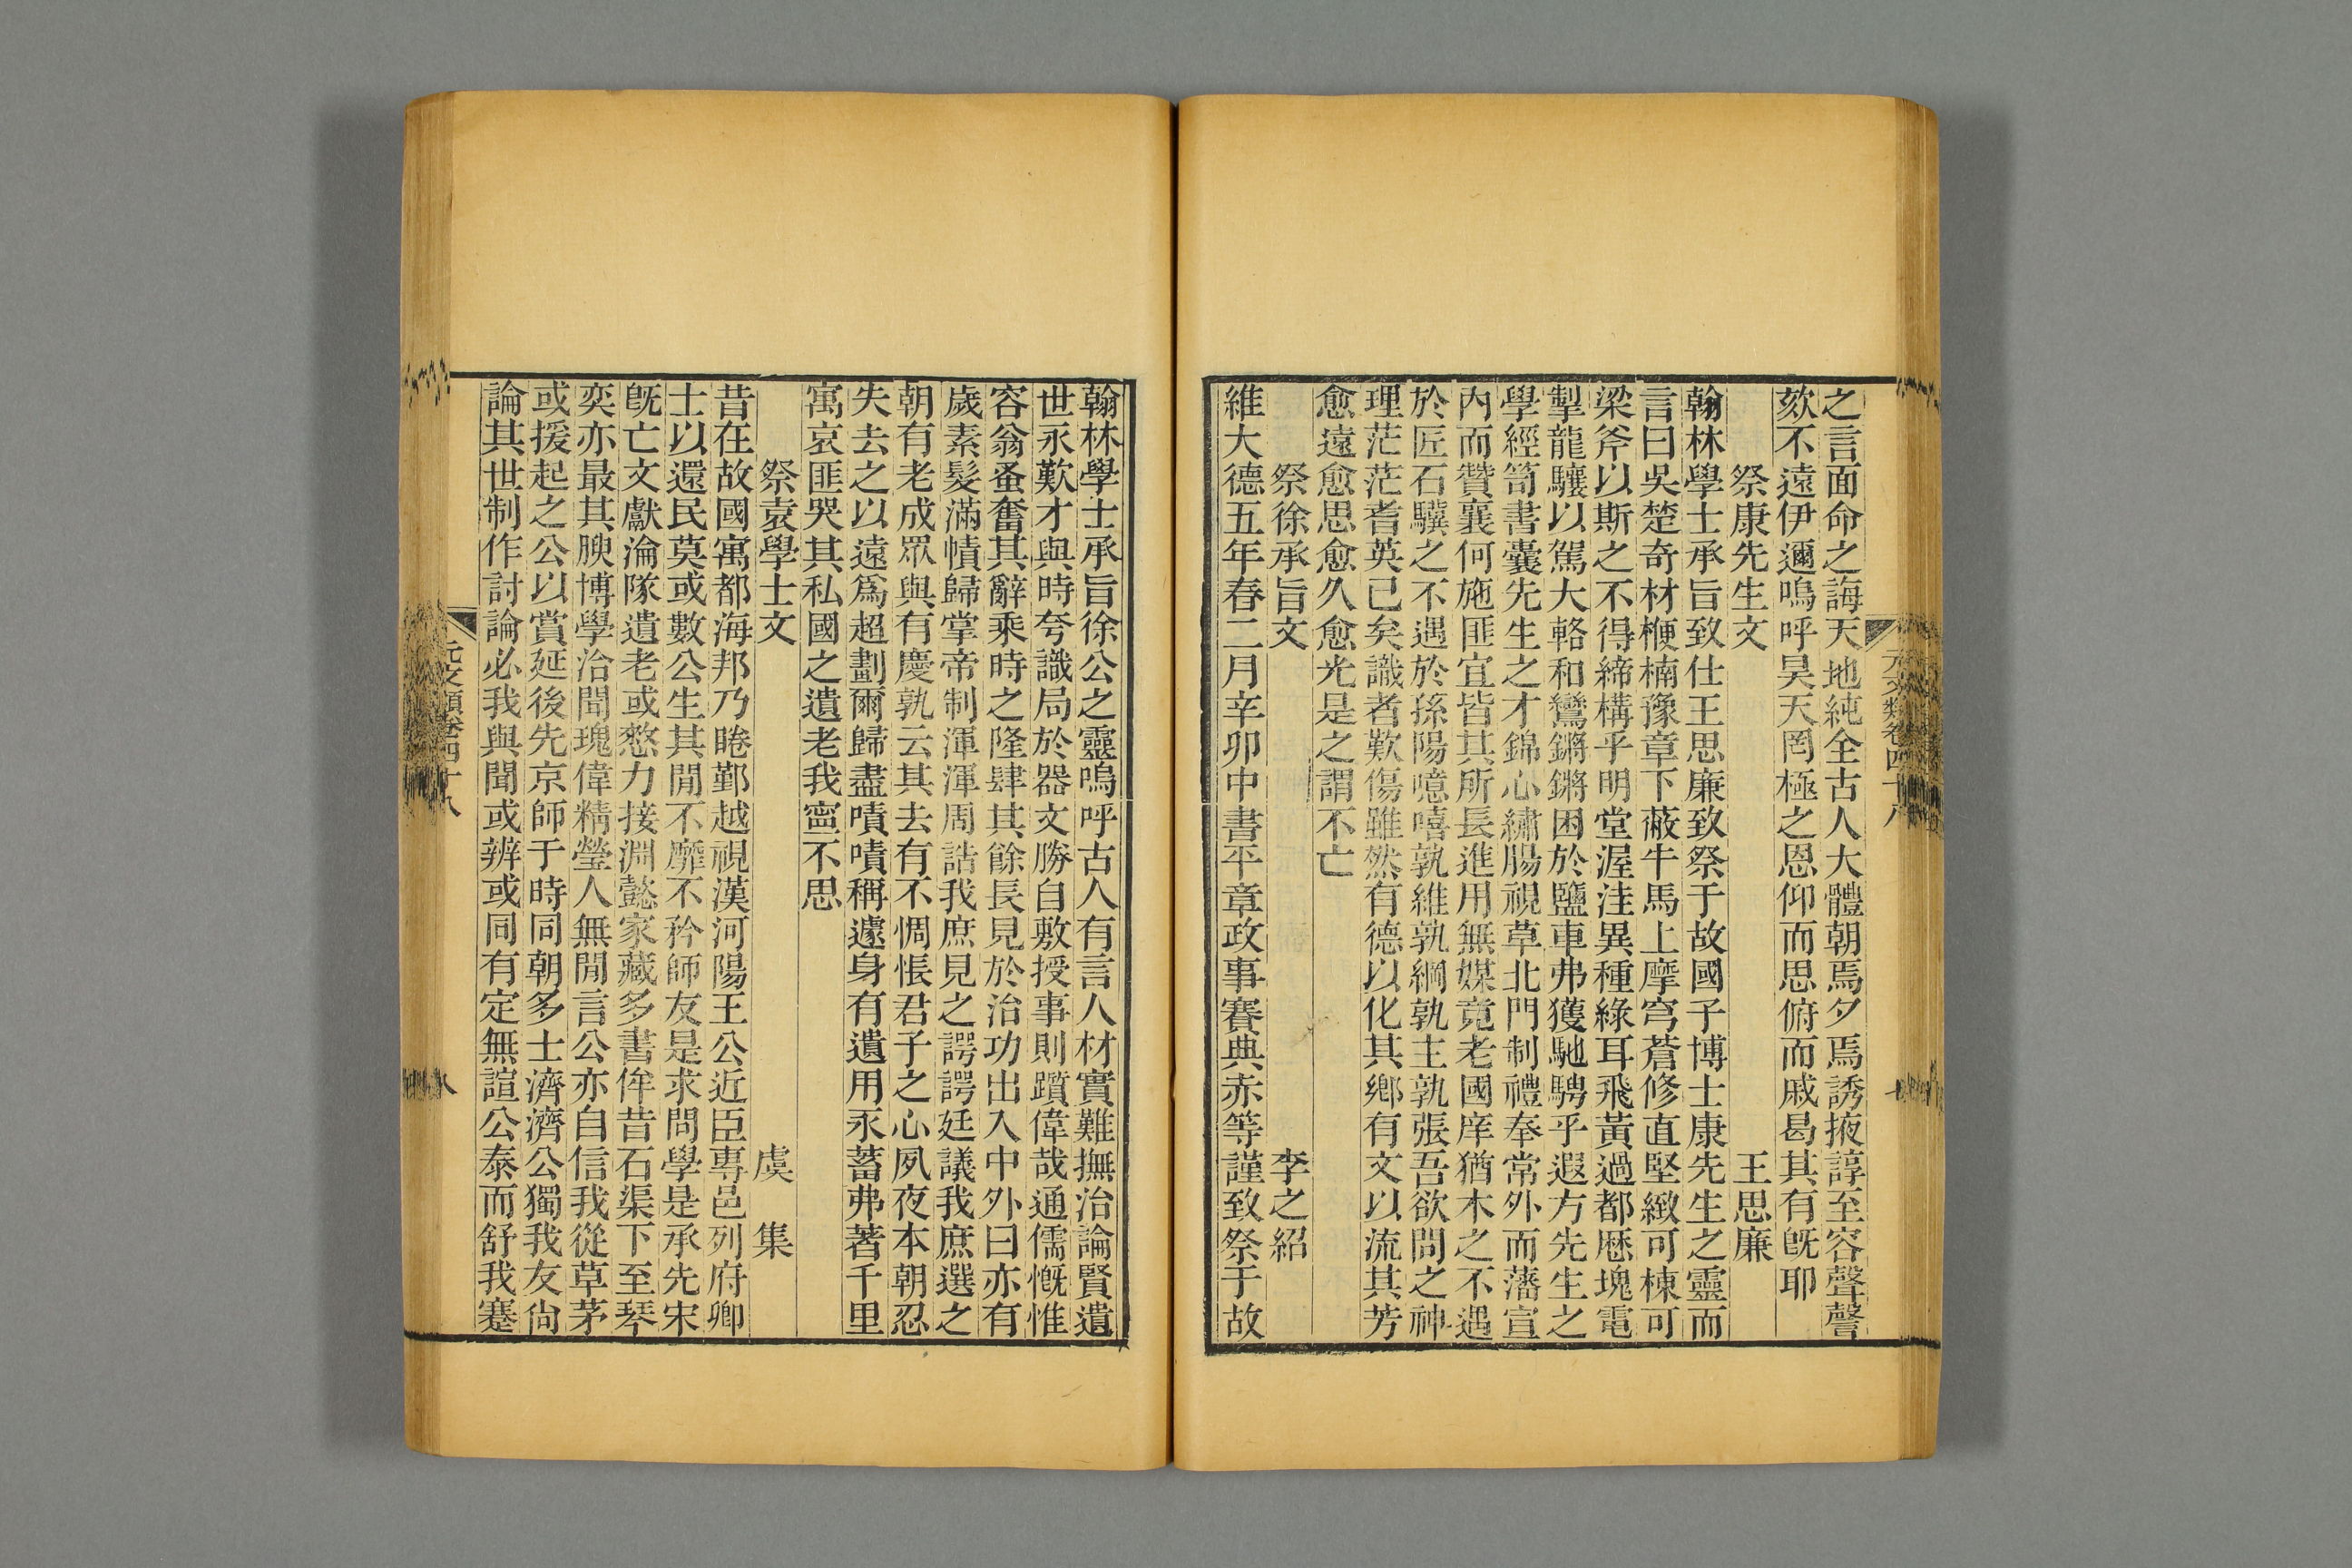 之言面命之誨天地純全古人大體朝焉夕焉誘掖諄至容聲謦
欬不遠伊邇嗚呼昊天罔極之恩仰而思俯而戚曷其有既耶
祭康先生文　王思廉
翰林學士承旨致仕王思廉致祭于故國子博士康先生之靈而
言曰吳楚奇材楩楠豫章下蔽牛馬上摩穹蒼修直堅緻可棟可
梁斧以斯之不得締構乎明堂渥洼異種綠耳飛黃過都歷塊電
掣龍驤以駕大輅和鸞鏘鏘困於鹽車弗獲馳騁乎遐方先生之
學經笥書囊先生之才錦心繡腸視草北門制禮奉常外而藩宣
內而贊襄何施匪宜皆其所長進用無媒竟老國庠猶木之不遇
於匠石驥之不遇於孫陽噫嘻孰維孰綱孰主孰張吾欲問之神
理茫茫耆英已矣識者歎傷雖然有德以化其鄉有文以流其芳
愈遠愈思愈久愈光是之謂不亡
祭徐承旨文　李之紹
維大德五年春二月辛卯中書平章政事賽典赤等謹致祭于故
翰林學士承旨徐公之靈嗚呼古人有言人材實難撫治論賢遺
世永歎才與時夸識局於器文勝自敷授事則躓偉哉通儒慨惟
容翁蚤奮其辭乘時之隆肆其餘長見於治功出入中外曰亦有
歲素髮滿幘歸掌帝制渾渾周誥我庶見之諤諤廷議我庶選之
朝有老成眾與有慶孰云其去有不惆悵君子之心夙夜本朝忍
失去之以遠爲超劃爾歸盡嘖嘖稱遽身有遺用永蓄弗著千里
寓哀匪哭其私國之遺老我寧不思
祭袁學士文　虞集
昔在故國寓都海邦乃睠鄞越視漢河陽王公近臣專邑列府卿
士以還民莫或數公生其閒不靡不矜師友是求問學是承先宋
既亡文獻淪隊遺老或憖力接淵懿家藏多書侔昔石渠下至琴
奕亦最其腴博學洽聞瑰偉精瑩人無閒言公亦自信我從草茅
或援起之公以賞延後先京師于時同朝多士濟濟公獨我友尙
論其世制作討論必我與聞或辨或同有定無諠公泰而舒我蹇
元文類卷四十八
八